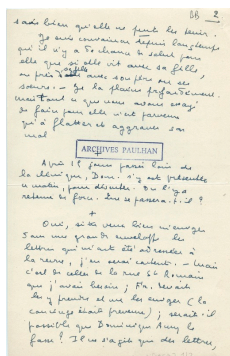 BB 2
sais bien qu'elle ne peut les tenir.
Je suis convaincu depuis longtemps
qu'il n'y a de chance de salut pour
elle que si elle vit avec sa fille,
ou près d' avec son père ou ses
sœurs. - Je la plains profondément.
mais tout ce que nous avons essayé
de faire pour elle n'est parvenu
qu'à flatter et aggraver son
mal
ARCHIVES PAULHAN
Après 15 jours passés loin de
la clinique, Dom. s'y est présentée
ce matin, pour discuter. On l'y a
retenue de force. Que se passera-t-il ?
+
Oui, si tu veux bien m'envoyer
dans une grande enveloppe les
lettres qui m'ont été adressées à
la revue, j'en serai content. - mais
c'est de celles de la rue St Romain
que j'avais besoin ;
les y prendre et me les envoyer (la
concierge était prévenue) ; serait-il
possible que Dominique Aury le
fasse ? Il ne s'agit que des lettres,